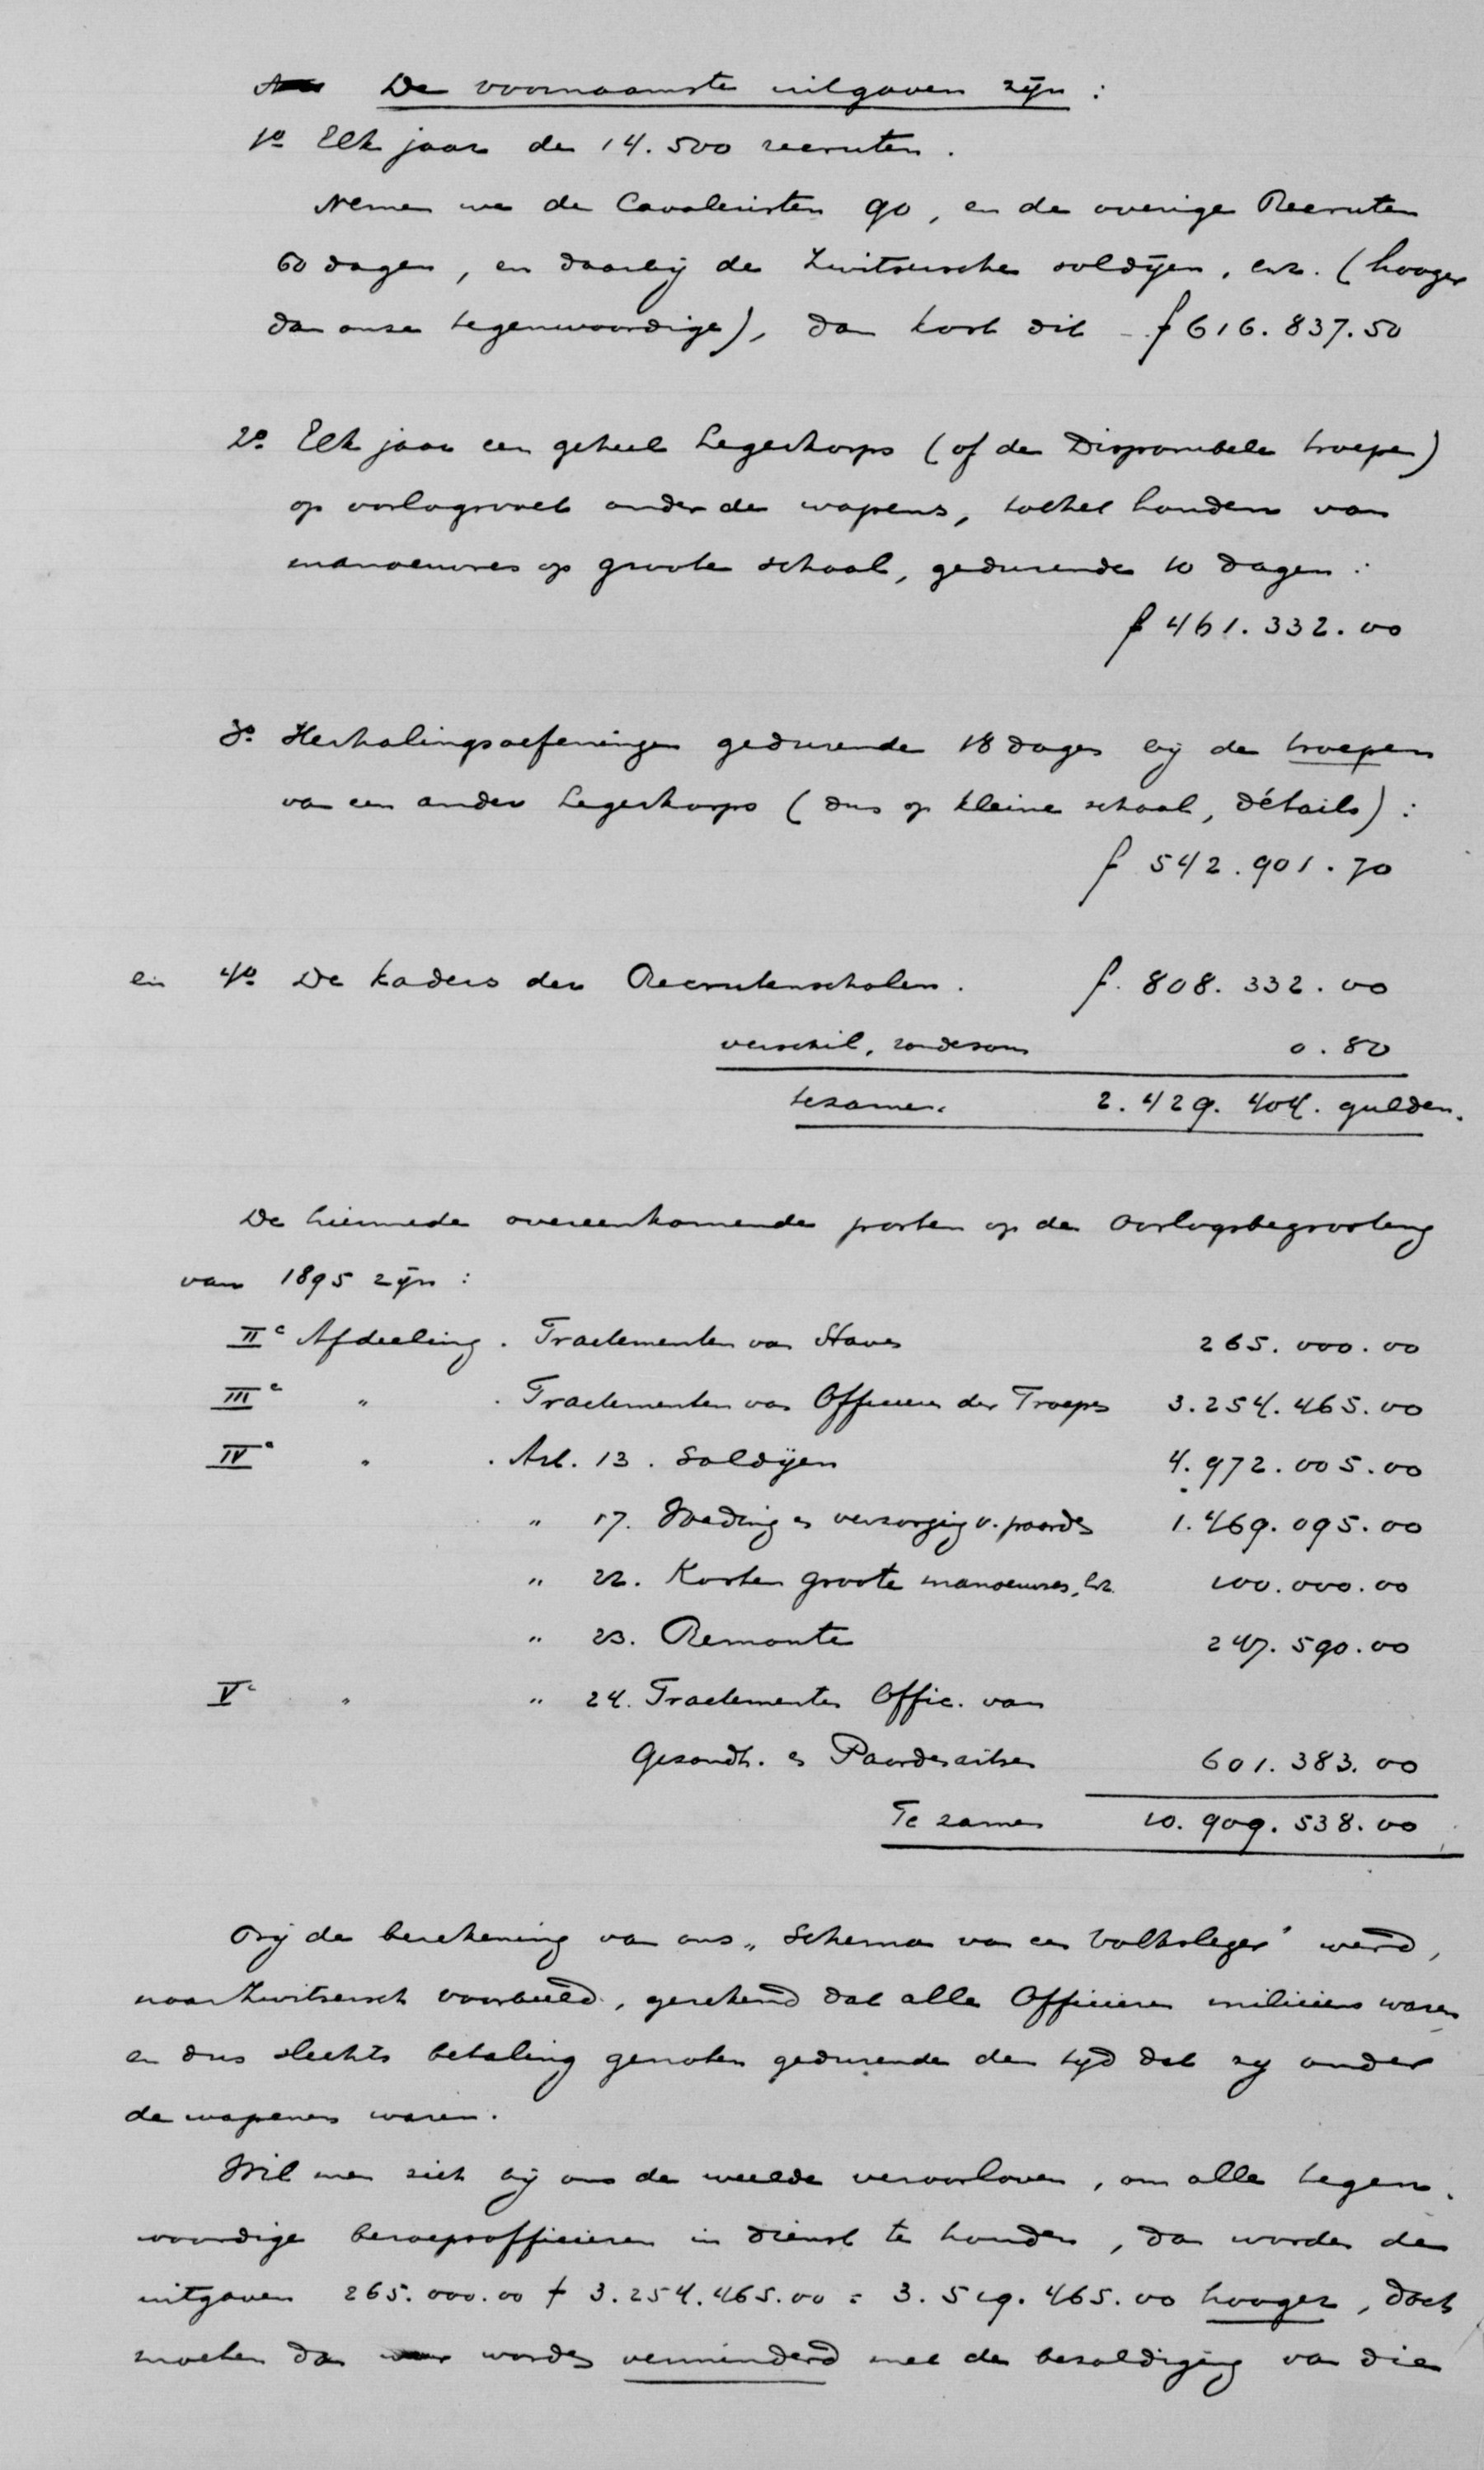 De voornaamste uitgaven zijn :
1º Elk jaar de 14.500 recruten.
Nemen we de Cavaleristen 90, en de overige Recruten
60 dagen, en daarbij de Zwitsersche soldijen, enz. (hooger
dan onze tegenwoordige), dan kost dit – f 616.837.50
2º Elk jaar een geheel Legerkorps (of de Disponibele troepen)
op oorlogsvoet onder de wapens, tot het houden van
manoeuvres op groote schaal, gedurende 10 dagen :
f 461.332.00
3º Herhalingsoefeningen gedurende 18 dagen bij de troepen
van een ander Legerkorps (dus op kleine schaal, détails) :
f 542.901.70
en 4º De kaders der Recrutenscholen. f. 808.332.00
verschil, rondesom 0.80
tezamen. 2.429.404. gulden.
De hiermede overeenkomende posten op de Oorlogsbegrooting
van 1895 zijn :
IIe Afdeeling. Tractementen van Staven 265.000.00
IIIe " . Tractementen van Officieren der Troepen 3.254.465.00
IVe " . Art. 13. Soldijen 4.972.005.00
" 17. Voeding en verzorging v. paarden 1.469.095.00
" 22. Kosten groote manoeuvres, enz. 100.000.00
" 23. Remonte 247.590.00
Ve " " 24. Tractementen Offic. van
Gezondh. en Paardenartsen 601.383.00
Te zamen 10.909.538.00
Bij de berekening van ons „Schema van een Volksleger" werd,
naar Zwitsersch voorbeeld, gerekend dat alle Officieren miliciens waren
en dus slechts betaling genoten gedurende den tijd dat zij onder
de wapenen waren.
Wil men zich bij ons de weelde veroorloven, om alle tegen-
woordige beroepsofficieren in dienst te houden, dan worden de
uitgaven 265.000.00 + 3.254.465.00 = 3.519.465.00 hooger, doch
moeten dan worden verminderd met de bezoldiging van die